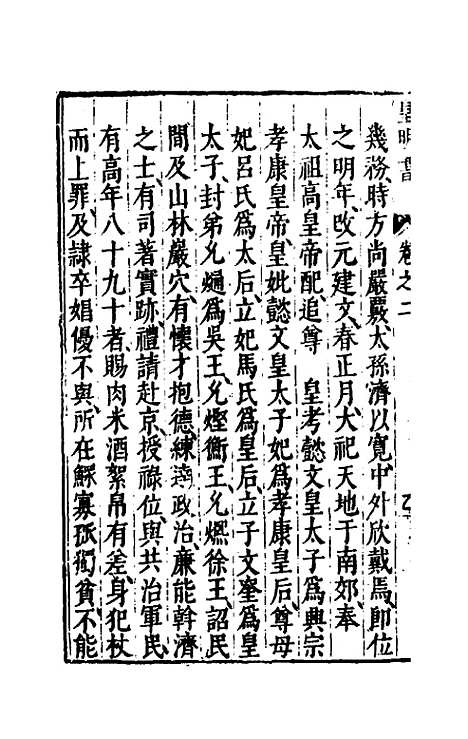 皇明書 卷之二
幾務時方尚嚴覈太孫濟以寬中外欣戴焉即位
之明年改元建文春正月大祀天地于南郊奉
太祖高皇帝配追尊 皇考懿文皇太子為興宗
孝康皇帝皇妣懿文皇太子妃為孝康皇后尊母
妃呂氏為太后立妃馬氏為皇后立子文奎為皇
太子封弟允熥為吳王允熞衡王允熈徐王詔民
間及山林巖穴有懷才抱德練達政治廉能幹濟
之士有司著實跡禮請赴京授祿位與共治軍民
有高年八十九十者賜肉米酒絮帛有差身犯杖
而上罪及隷卒娼優不與所在鰥寡孤獨貧不能